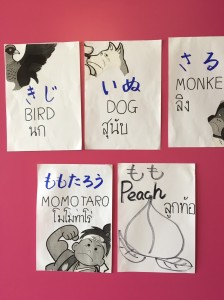 きじ
BIRD
นก
いぬ
DOG
สุนับ
さる
MONKE
ลิง
ももたろう
MOMOTARO
โมโมทาโร่
もも
Peach
ลูกท้อ